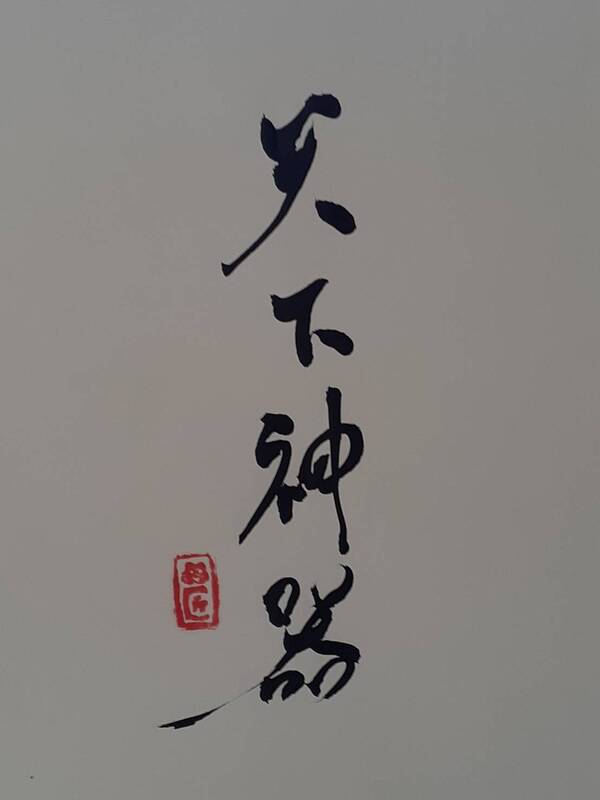 天下神器